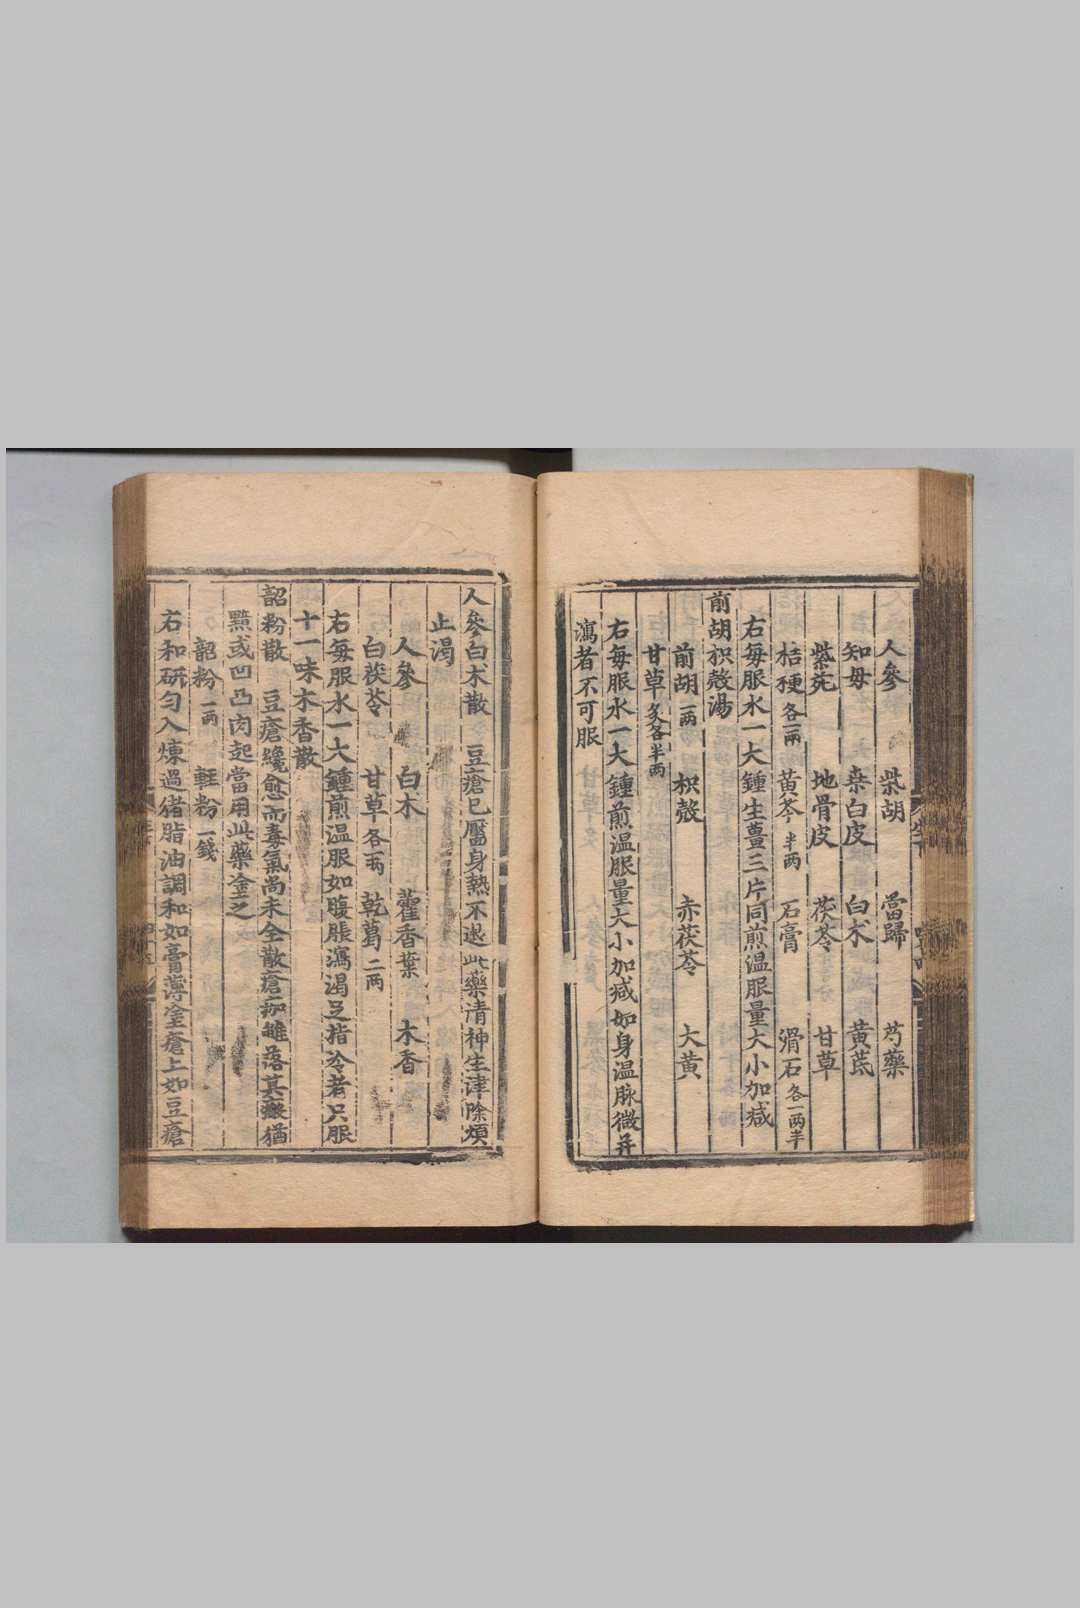 人參 柴胡 當歸 芍藥
知母 桑白皮 白朮 黄芪
紫菀 地骨皮 茯苓 甘草
桔梗各一兩 黄芩半兩 石膏 滑石各一兩半
右每服水一大鍾生薑三片同煎温服量大小加减
前胡枳殻湯
前胡一兩 枳殻 赤茯苓 大黄
甘草炙各半兩
右每服水一大鍾煎温服量大小加减如身温脉微并
瀉者不可服
人參白朮散 豆瘡已靨身熱不退此藥清神生津除煩
止渴
人參 白朮 藿香葉 木香
白茯苓 甘草各一兩 乾葛二兩
右每服水一大鍾煎温服如腹脹瀉渴足指冷者只服
十一味木香散
韶粉散 豆瘡纔愈而毒氣尚未全散瘡痂雖落其瘢猶
黯或凹凸肉起當用此藥塗之
韶粉一兩 輕粉一錢
右和研匀入煉過猪脂油調和如膏薄塗瘡上如豆瘡